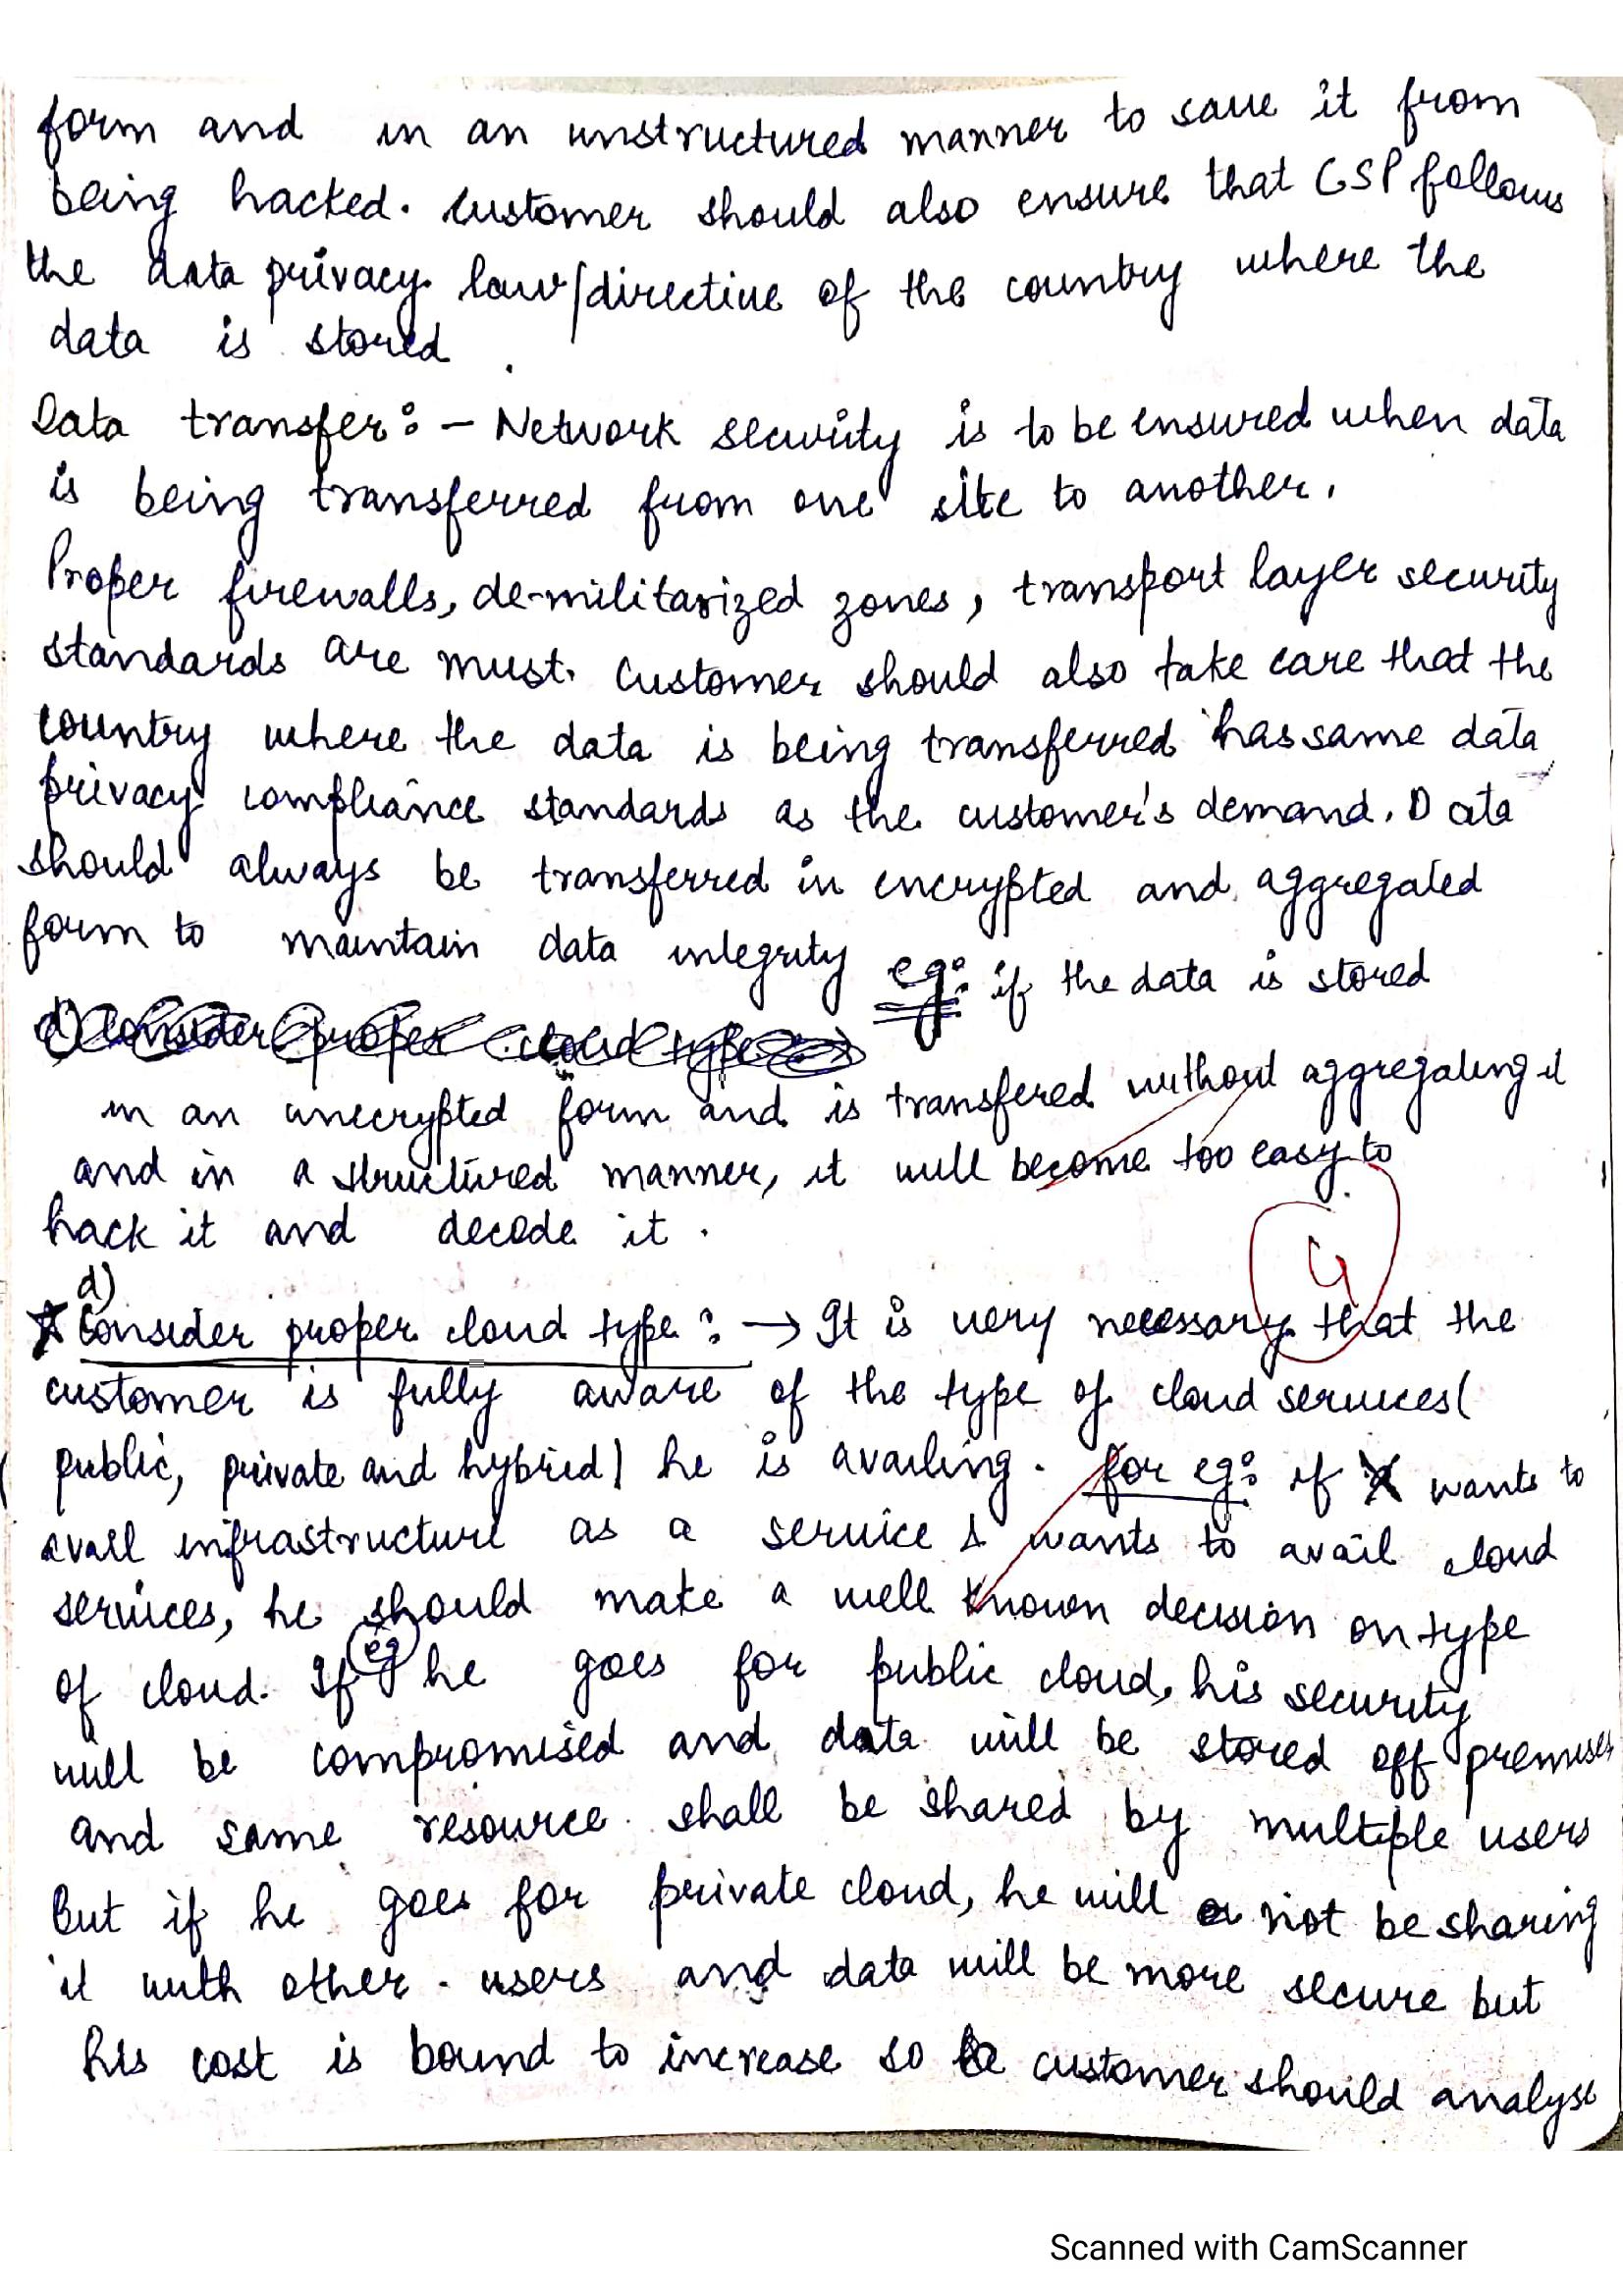 form and in an unstructured manner to save it from
being hacked. Customer should also ensure that CSP follows
the data privacy law/directive of the country where the
data is stored.
Data transfer:- Network security is to be ensured when data
is being transferred from one site to another.
Proper firewalls, de-militarized zones, transport layer security
standards are must. Customer should also take care that the
country where the data is being transferred has same data
privacy compliance standards as the customer's demand. Data
should always be transferred in encrypted and aggregated
form to maintain data integrity eg: if the data is stored
d) Consider proper cloud type
in an unecrypted form and is transfered without aggregating it
and in a structured manner, it will become too easy to
hack it and decode it.
4
d)
Consider proper cloud type: → It is very necessary that the
customer is fully aware of the type of cloud services(
public, private and hybrid) he is availing. for eg: if X wants to
avail infrastructure as a service & wants to avail cloud
services, he should make a well known decision on type
of cloud. If eg he goes for public cloud, his security
will be compromised and data will be stored off premises
and same resource shall be shared by multiple users
But if he goes for private cloud, he will not be sharing
it with other users and data will be more secure but
his cost is bound to increase so customer should analyse
Scanned with CamScanner